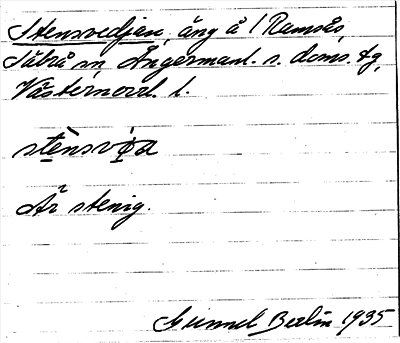 Stensvedjan, äng å 1 Ramsås,
Säbrå sn, Ångermanl. s. doms. tg,
Västernorrl. l.
stènsvı̣̀a
Är stenig.
Gunnel Berlin 1935